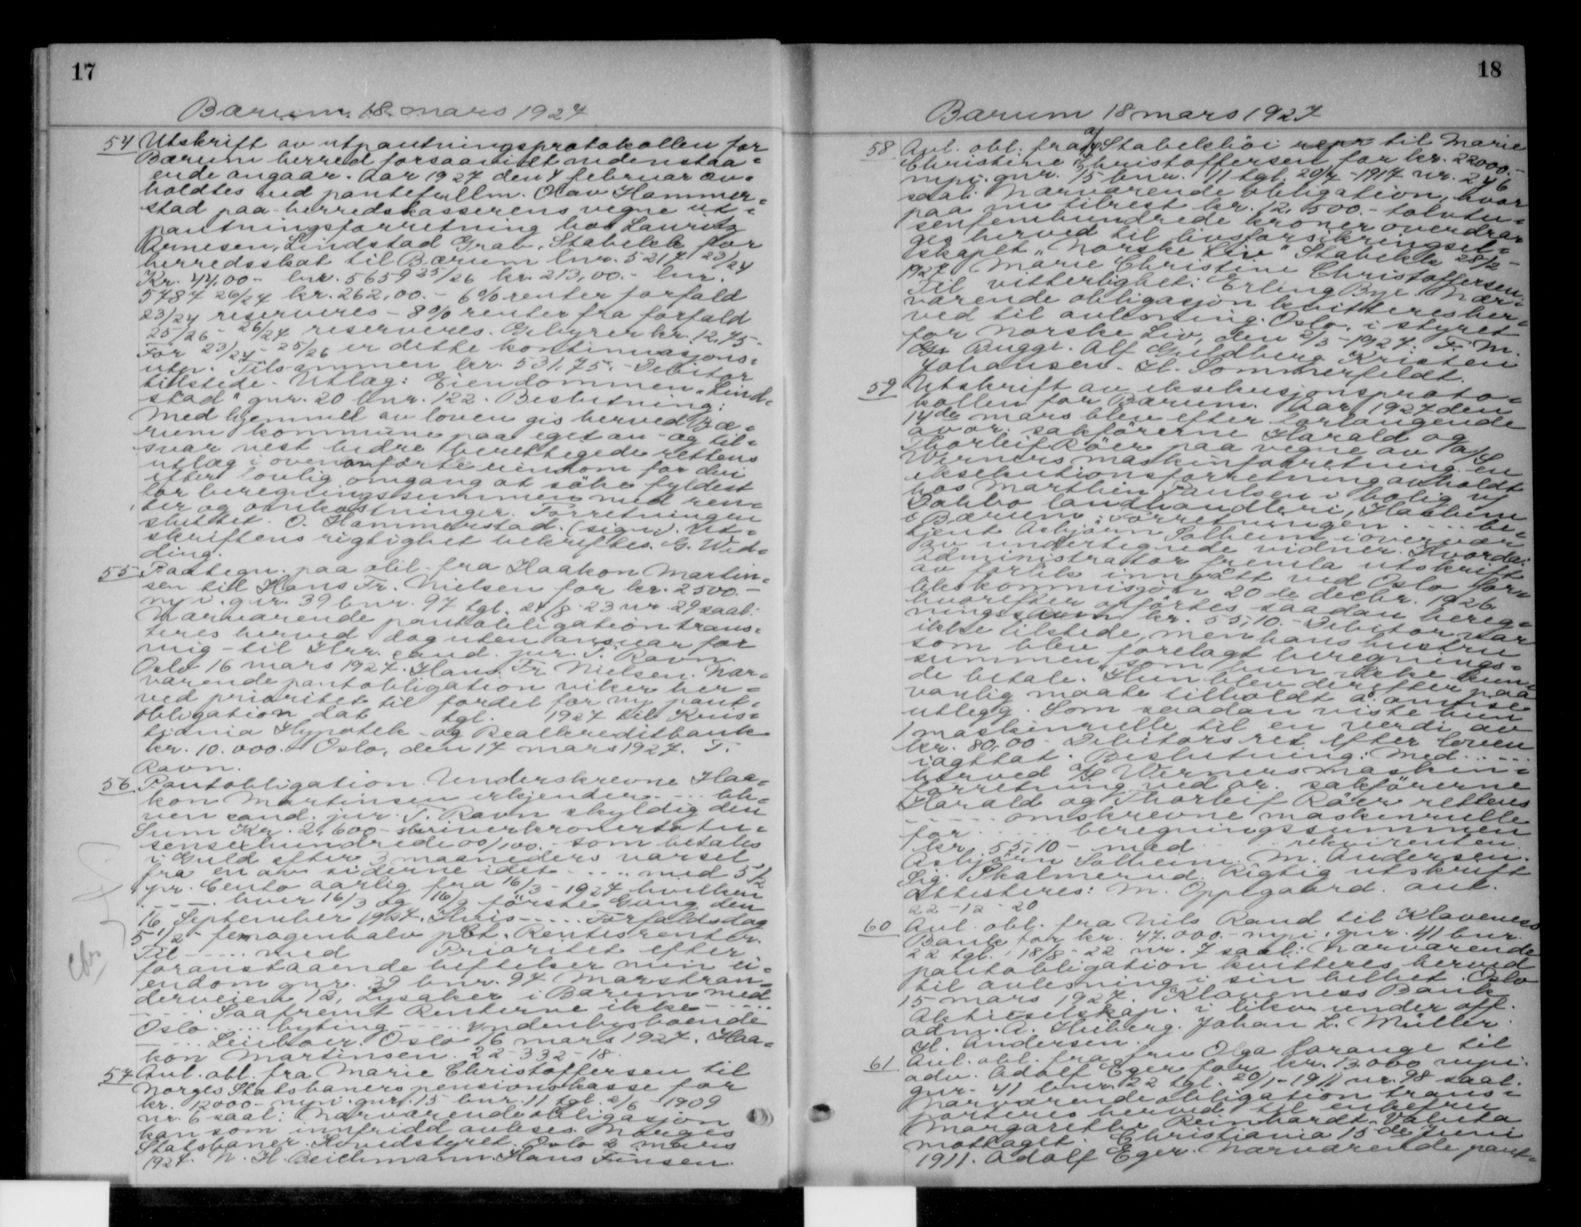 17
Bærum 18 mars 1927
54 Utskrift av utpantningsprotokollen for
Bærum herred forsaavidt nedenstaa-
ende angaar. Aar 1927 den 4 februar av-
holdtes ved pantefullm. Olav Hammer-
stad paa herredskasserens vegne ut-
pantningsforretning hos Lauritz
Arnesen, Lindstad Grab. Stabekk for
herredsskat til Bærum lnr. 5217 23/24
Kr. 44,00- lnr. 5659 25/26 kr. 213,00.- lnr.
5787 26/27 kr. 262,00.- 6% renter forfald
23/24 reserveres - 8% renter fra forfald
25/26 - 26/27 reserveres. Gebyrer kr. 12,75-
For 23/24 - 25/26 er dette kontinuasjons-
utp. Tilsammen kr. 531,75.- Debitor
tilstede. Utlæg: Eiendommen "Lind-
stad" gnr. 20 bnr. 122. Beslutning:
Med hjemmel av loven gis herved Bæ-
rum kommune paa eget an- og til-
svar nest bedre berettigede rettens
utlæg i ovenanførte eiendom for deri
efter lovlig omgang at søke fyldest
for beregningssummen med ren-
ter og omkostninger. Forretningen
sluttet. O. Hammerstad. (sign). Ut-
skriftens rigtighet bekræftes. G. Wid-
ding.
55 Paategn. paa obl. fra Haakon Martin-
sen til Hans Fr. Nielsen for kr. 2500.-
mpi. gnr. 39 bnr. 97 tgl. 21/8-23 nr. 29 saal:
Nærværende pantobligation trans-
teres herved dog uten ansvar for
mig - til Hrr. cand. jur. T. Ravn
Oslo 16 mars 1927. Hans Fr Nielsen. Nær-
værende pantobligation viker her-
ved prioritet til fordel for ny pant-
obligation dat tgl. 1927 til Kris-
tiania Hypotek- og Realkreditbank
kr. 10.000.- Oslo, den 17 mars 1927. T.
Ravn.
56 Pantobligation Underskrevne Haa-
kon Martinsen erkjender .... ble-
ven cand. jur. T. Ravn skyldig den
Sum Kr. 2,600- skriver kroner to tu-
sensexhundrede 00/100.- som betales
i Guld efter 3 maaneders varsel
fra en av siderne idet ..... med 5 1/2
pr. Cento aarlig fra 16/3 - 1927 hvilken
..... hver 16/3 og 16/9 første Gang den
16 September 1927. Hvis .... Forfaldsdag
5 1/2 - femogenhalv pct. Rentesrenter.
Til ..... med Prioritet efter
foranstaaende heftelser min ei-
endom gnr. 39 bnr. 97 Marstran-
derveien 12, Lysaker i Bærum med
..... Saafremt Renterne ikke .....
Oslo .... byting ..... Indenbysboende
..... Leieboer. Oslo 16 mars 1927. Haa-
kon Martinsen. 22-332-18.
57 Avl. obl. fra Marie Christoffersen til
Norges Statsbaners pensionskasse for
kr. 12000- mpi. gnr. 15 bnr. 11 tgl. 2/6 - 1909
nr. 6 saal: Nærværende obligasjon
kan som innfridd avleses. Norges
Statsbaner. Hovedstyret. Oslo 2 mars
1927. N. H. Beichmann. Hans Finsen.
18
Bærum 18 mars 1927
58 Avl. obl. fra A/S Stabekhöi til Marie
Christine Christoffersen for kr. 22000.-
mpi. gnr. 15 bnr. 11 tgl. 20/7-1917 nr. 246
saal: Nærværende obligation, hvor
paa nu tilrest kr. 12,500.- tolvtu-
senfemhundrede kroner overdrar
jeg herved til livsforsikringssel-
skapet "Norske Liv" Stabekk 28/2 -
1927. Marie Christine Christoffersen
Til vitterlighet: Erling Bye. Nær-
værende obligasjon kvitteres her-
ved til avlesning. Oslo, i styret
for Norske Liv, den 2/3 - 1927. F. M.
Bugge. Alf Guldberg. Kristen
Johansen. H. Sommerfeldt.
59 Utskrift av eksekusjonsproto-
kollen for Bærum. Aar 1927 den
14de mars blev efter forlangende
av or. sakførerne Harald og
Thorleif Röer paa vegne av A/S
Werners maskinforretning en
eksekutionsforretning avholdt
hos Marthin Paulsen i bolig v/
Dokbo landhandleri, Haslum
i Bærum. Forretningen .... be-
tjent Asbjörn Solheim i overvær
av undertegnede vidner. Hvorda:
administrator fremla utskrift
av forlik inngått ved Oslo for-
likskommisjon 20de decbr. 1926
hvorefter opførtes saadan bereg-
ningssum kr. 55,10.- Debitor var
ikke tilstede, men hans hustru
som blev forelagt beregnings-
summen, som hun ikke kun-
de betale. Hun blev derefter paa
vanlig maate tilholdt å anvise
utlegg. Som saadan viste hun
1 maskinrulle til en verdi av
kr. 80,00 - Debitors ret efter loven
iagttat. Beslutning: Med .....
herved A/S Werners maskin-
forretning ved or. sakførerne
Harald og Thorleif Röer rettens
..... omskrevne maskinrulle
for ..... beregningssummen
kr. 55,10 - med ..... rekvirenten.
Asbjörn Solheim. M. Andersen.
Sig. Skalmerud. Rigtig utskrift
Attesteres: M. Oppegaard. aut.
22-12-20
60 Avl. obl. fra Nils Rand til Klaveness
Bank for kr. 47.000.- mpi. gnr. 41 bnr.
22 tgl. 18/8-22 nr. 7 saal: Nærværende
pantobligation kvitteres herved
til avlesning i sin helhet. Oslo
15 mars 1927. Klaveness Bank
Aktieselskap. i likv. under off.
adm. A. Heiberg. Johan L. Müller.
H. Andersen.
61 Avl. obl. fra fru Olga Forange til
adv. Adolf Eger for kr. 13.000 mpi.
gnr. 41 bnr. 22 tgl. 20/1-1911 nr. 78 saal:
Nærværende obligation trans-
porteres herved til enkefru
Margarethe Reinhardt. Valuta
mottaget. Christiania 15de juni
1911. Adolf Eger. Nærværende pant-